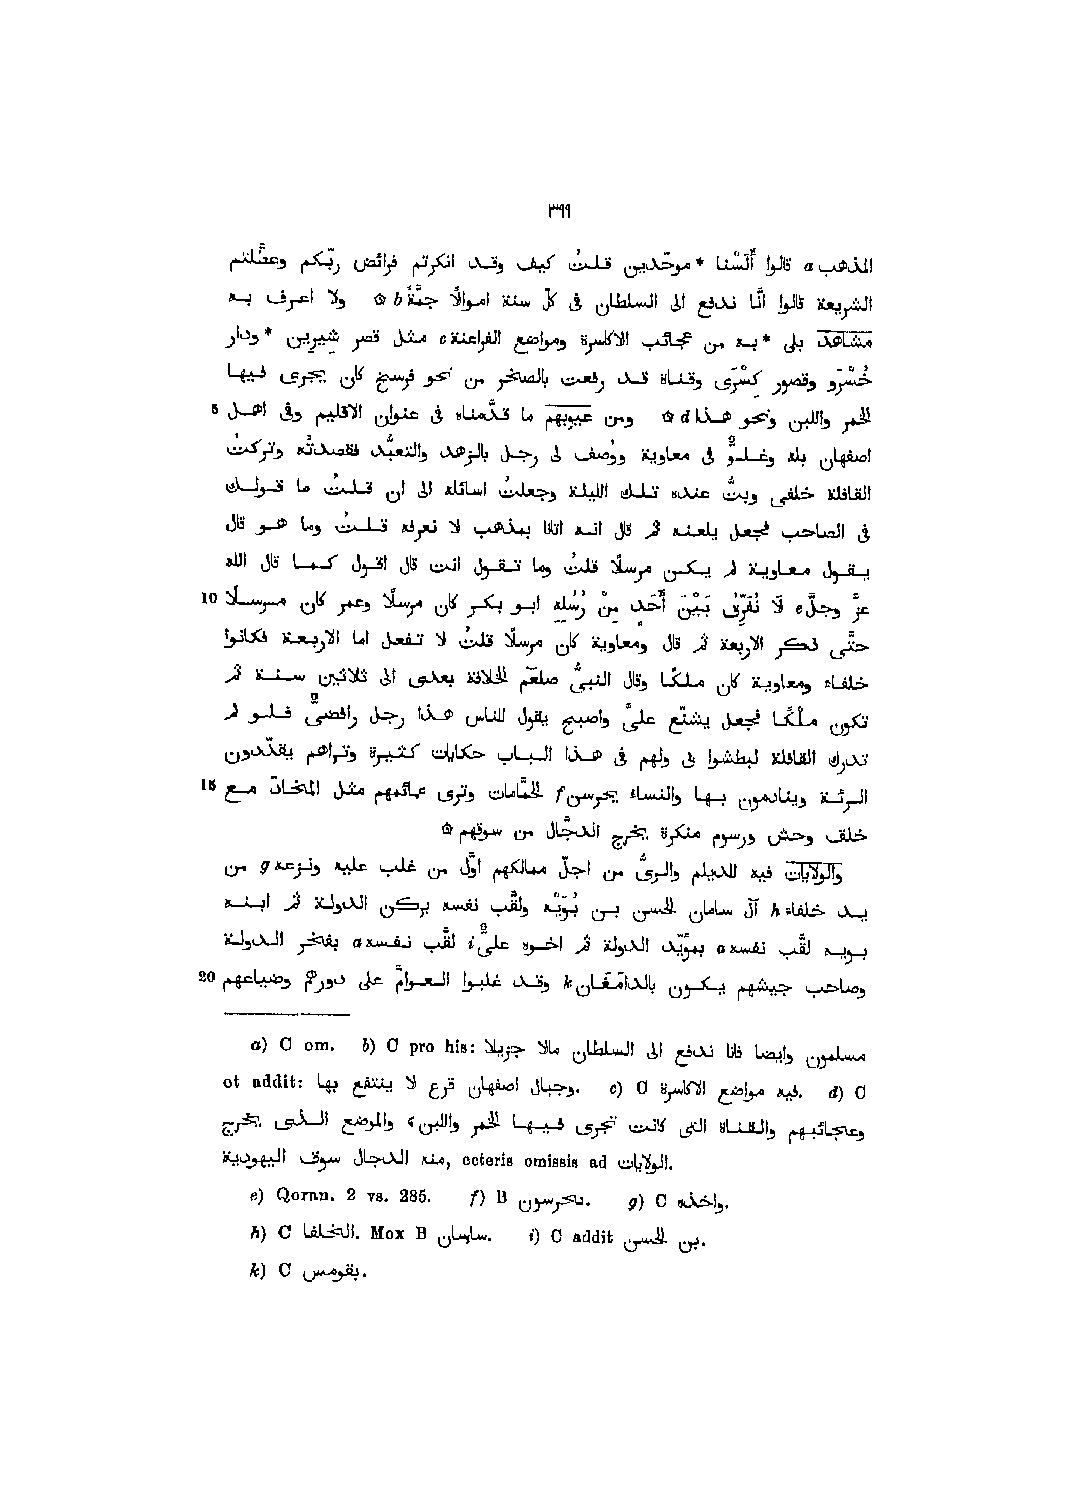 ٣٩٩
المذهب a قالوا أَلَسْنا * موحّدين قلتُ كيف وقد انكرتم فرائض ربّكم وعطّلتم
الشريعة قالوا انّا ندفع الى السلطان فى كلّ سنة اموالًا جمّةً b ۞ ولا اعرف به
مشاهد بلى * به من عجائب الاكاسرة ومواضع الفراعنة c مثل قصر شيرين * ودار
خُسْرَو وقصور كِسْرَى وقناة قد رفعت بالصخر من نحو فرسخ كان يجرى فيها
5 الخمر واللبن ونحو هذا d ۞ ومن عيوبهم ما قدّمناه فى عنوان الاقليم وفى اهل
اصفهان بله وغلوٌّ فى معاوية ووُصف لى رجل بالزهد والتعبُّد فقصدتُه وتركتُ
القافلة خلفى وبتُّ عنده تلك الليلة وجعلتُ اسائله الى ان قلتُ ما قولك
فى الصاحب فجعل يلعنه ثم قال انه اتانا بمذهب لا نعرفه قلتُ وما هو قال
يقول معاوية لم يكن مرسلًا قلتُ وما تقول انت قال اقول كما قال الله
10 عزّ وجلّ e لَا نُفَرِّقُ بَيْنَ أَحَدٍ مِنْ رُسُلِهِ ابو بكر كان مرسلًا وعمر كان مرسلًا
حتّى ذكر الاربعة ثم قال ومعاوية كان مرسلًا قلتُ لا تفعل اما الاربعة فكانوا
خلفاء ومعاوية كان ملكًا وقال النبىُّ صلعم الخلافة بعدى الى ثلاثين سنة ثم
تكون ملْكًا فجعل يشنّع علىَّ واصبح يقول للناس هذا رجل رافضىٌّ فلو لم
تدرك القافلة لبطشوا بى ولهم فى هذا الباب حكايات كثيرة وتراهم يقدّدون
15 الرئة وينادمون بها والنساء يحرسن f الحمّامات وترى عمائمهم مثل المخادّ مع
خلف وحش ورسوم منكرة يخرج الدجّال من سوقهم ۞
والولايات فيه للديلم والرىُّ من اجلّ ممالكهم اوّل من غلب عليه ونزعه g من
يد خلفاء h آل سامان الحسن بن بُوَيْه ولقّب نفسه بركن الدولة ثم ابنه
بويه لقّب نفسه a بمؤيّد الدولة ثم اخوه علىٌّ i لقّب نفسه a بفخر الدولة
20 وصاحب جيشهم يكون بالدامَغان k وقد غلبوا العوامَّ على دورهم وضياعهم
a) C om. b) C pro his: مسلمون وايضا فانا ندفع الى السلطان مالا جزيلا
et addit: وجبال اصفهان قرع لا ينتفع بها. c) C فيه مواضع الاكاسرة. d) C
وعجائبهم والقناة التى كانت تجرى فيها الخمر واللبن، والموضع الذى يخرج
منه الدجال سوق اليهودية, ceteris omissis ad الولايات.
e) Qoran. 2 vs. 285. f) B يحرسون. g) C واخذه.
h) C الخلفا. Mox B سليمان. i) C addit بن الحسن.
k) C بقومس.